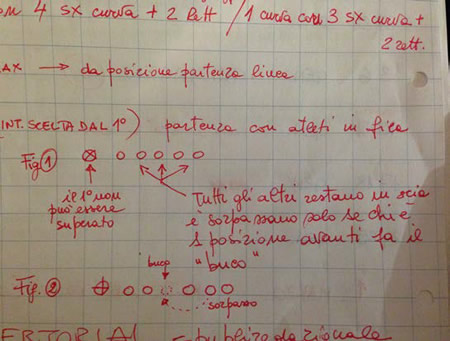 4 SX CURVA + 2 Rett / 1 curva con 3 SX curva +
2 rett.
AX → da posizione partenza linea
INT. SCELTA DAL 1°) partenza con atleti in fila
Fig. 1
il 1° non
può essere
superato
Tutti gli altri restano in scia
e sorpassano solo se chi è
1 posizione avanti fa il
"buco"
buco
Fig. 2
sorpasso